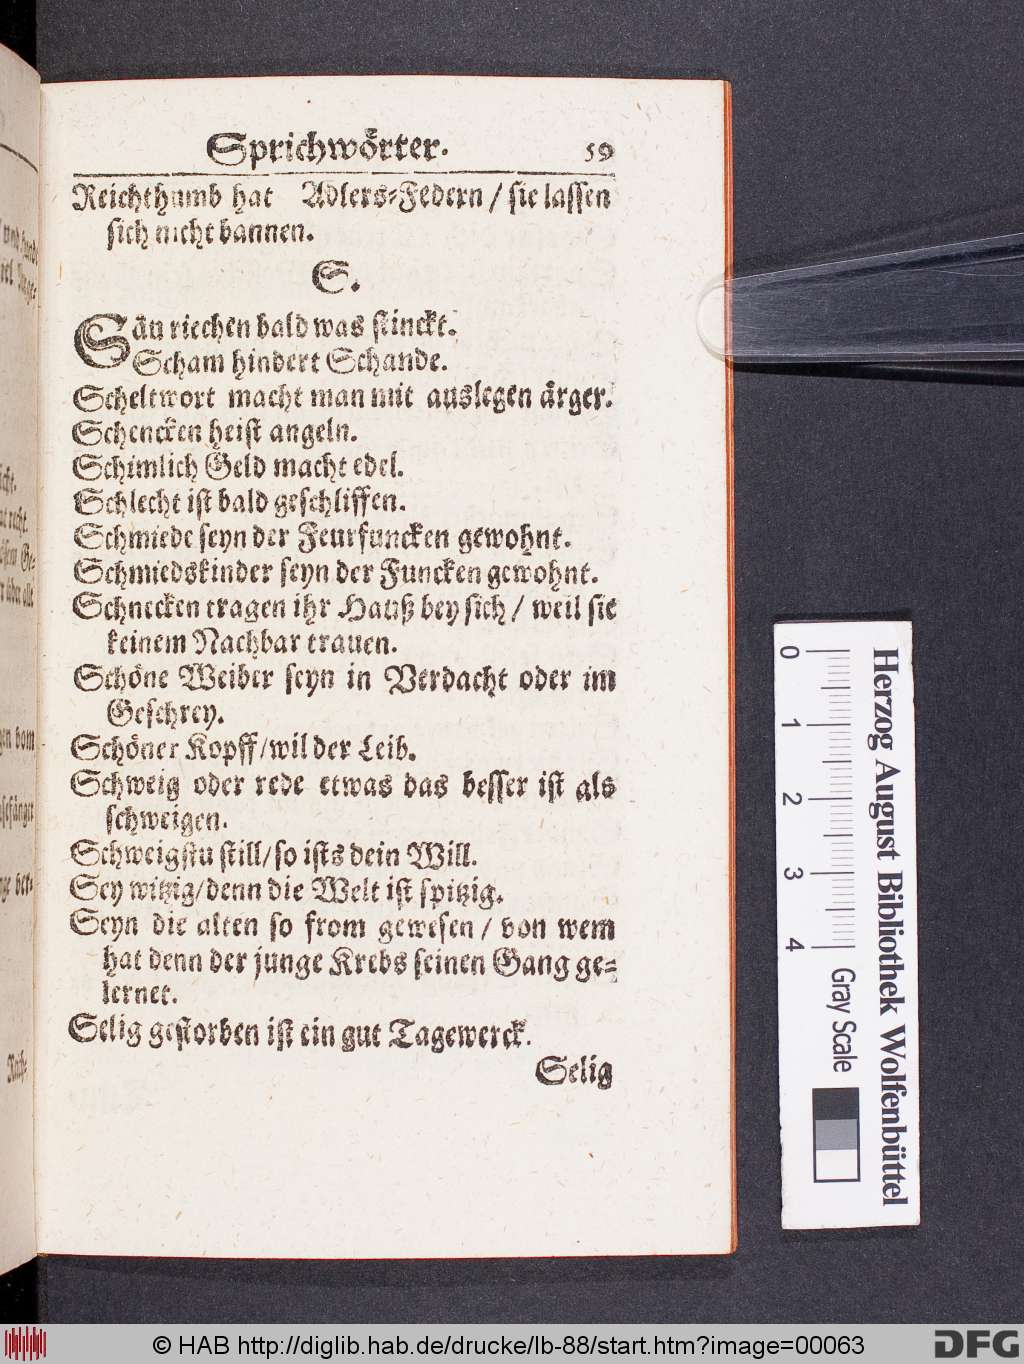 Sprichwörter. 59
Reichthumb hat Adlers-Federn / sie lassen
sich nicht bannen.
S.
Säu riechen bald was stinckt.
Scham hindert Schande.
Scheltwort macht man mit auslegen ärger.
Schencken heist angeln.
Schimlich Geld macht edel.
Schlecht ist bald geschliffen.
Schmiede seyn der Feurfuncken gewohnt.
Schmiedskinder seyn der Funcken gewohnt.
Schnecken tragen ihr Hauß bey sich / weil sie
keinem Nachbar trauen.
Schöne Weiber seyn in Verdacht oder im
Geschrey.
Schöner Kopff/wil der Leib.
Schweig oder rede etwas das besser ist als
schweigen.
Schweigstu still/so ists dein Will.
Sey witzig/denn die Welt ist spitzig.
Seyn die alten so from gewesen / von wem
hat denn der junge Krebs seinen Gang ge-
lernet.
Selig gestorben ist ein gut Tagewerck.
Selig
0 1 2 3 4 Gray Scale
Herzog August Bibliothek Wolfenbüttel
© HAB http://diglib.hab.de/drucke/lb-88/start.htm?image=00063
DFG